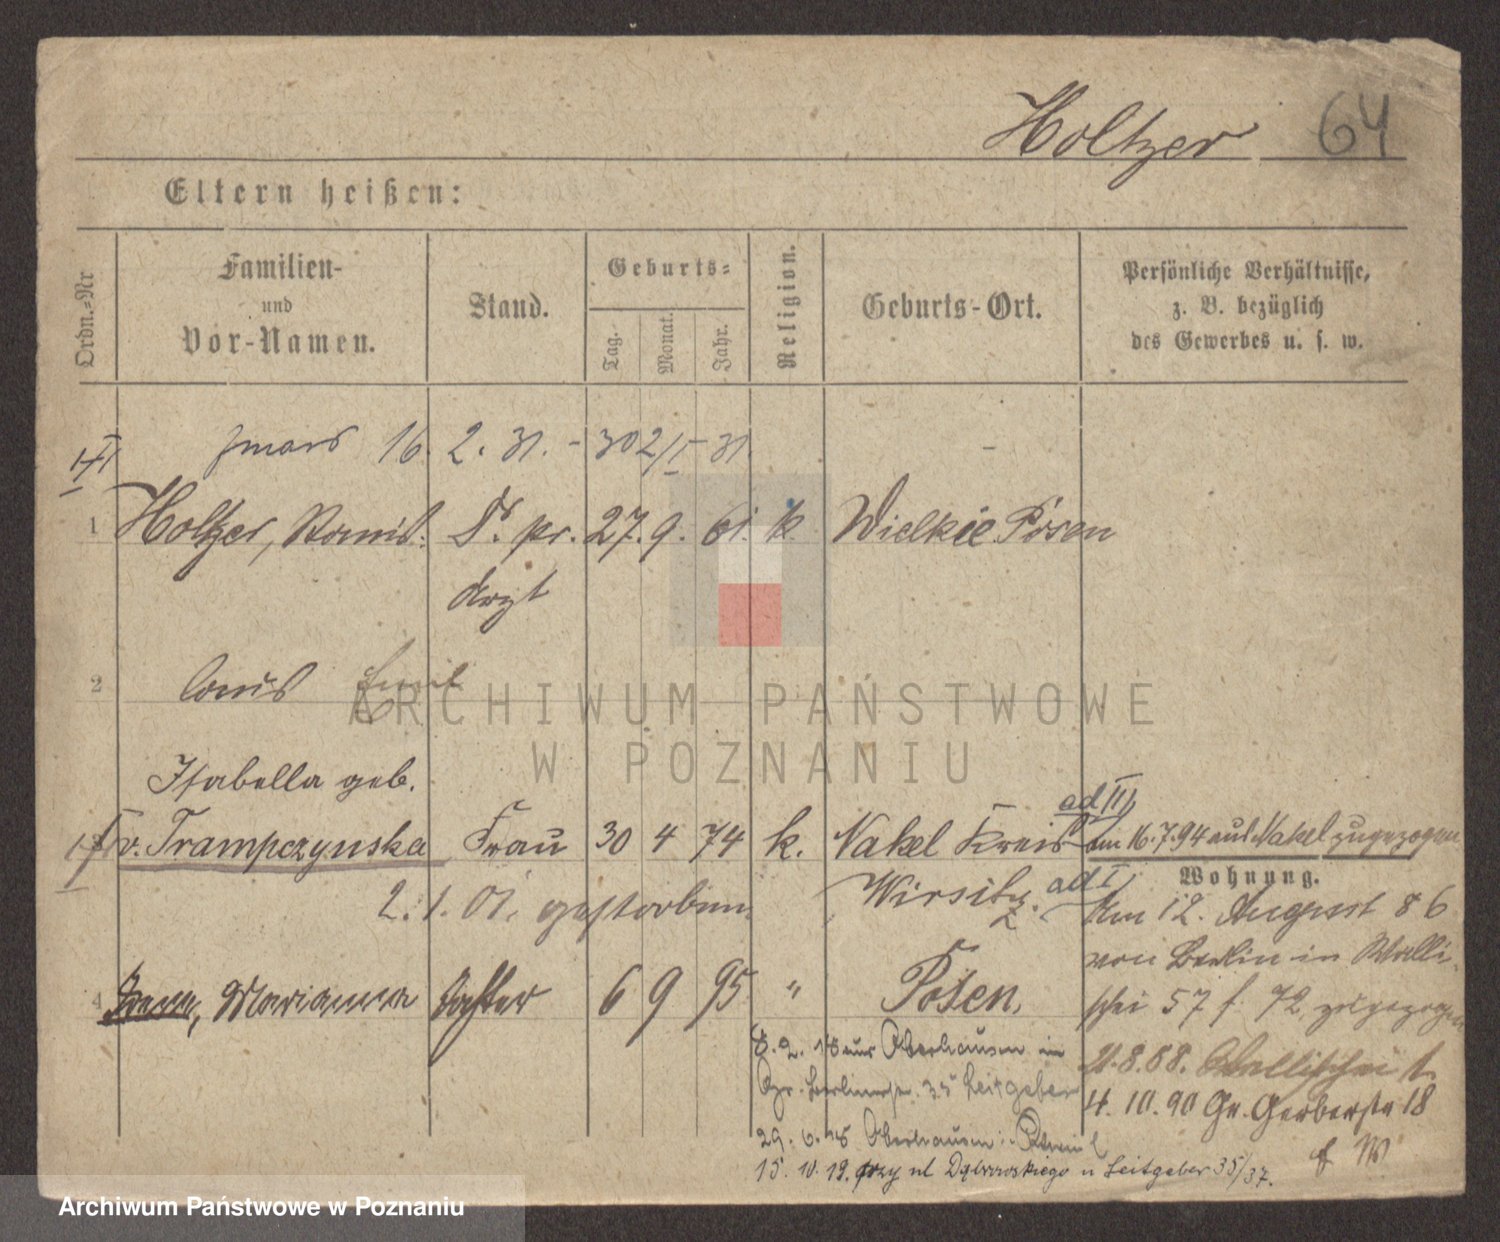 Holtzer 64
Eltern heißen:
Ordn.-Nr
Familien-
und
Vor-Namen.
Stand.
Geburts-
Tag.
Monat.
Jahr.
Religion.
Geburts-Ort.
Persönliche Verhältnisse,
z. B. bezüglich
des Gewerbes u. s. w.
zmarł 16. 2. 31. - 30 2/II 31
1 Holtzer, Stanisl. Dr. pr. 27. 9. 61. k. Wielkie Posen
Arzt
2
ARCHIWUM PAŃSTWOWE
W POZNANIU
Isabella geb.
v. Trampczynska Frau 30 4 74 k. Nakel Kreis
ad II) Am 16.7.94 aus Nakel zugezogen
Wirsitz.
Wohnung.
2. 1. 01. gestorben
ad I) Am 12. August 86
von Berlin in Walli-
schei 57 f. 72, zugezogen
4 Marianna Tochter 6 9 95 " Posen,
8. 2. 18 aus Oberhausen in
21.8.88. Wallischei 1.
35 Leitgeber
4. 10. 90 Gr. Gerberstr 18
29. 6. 18 Oberhausen
15. 10. 19. przy ul Dąbrowskiego u Leitgeber 35/37.
Archiwum Państwowe w Poznaniu